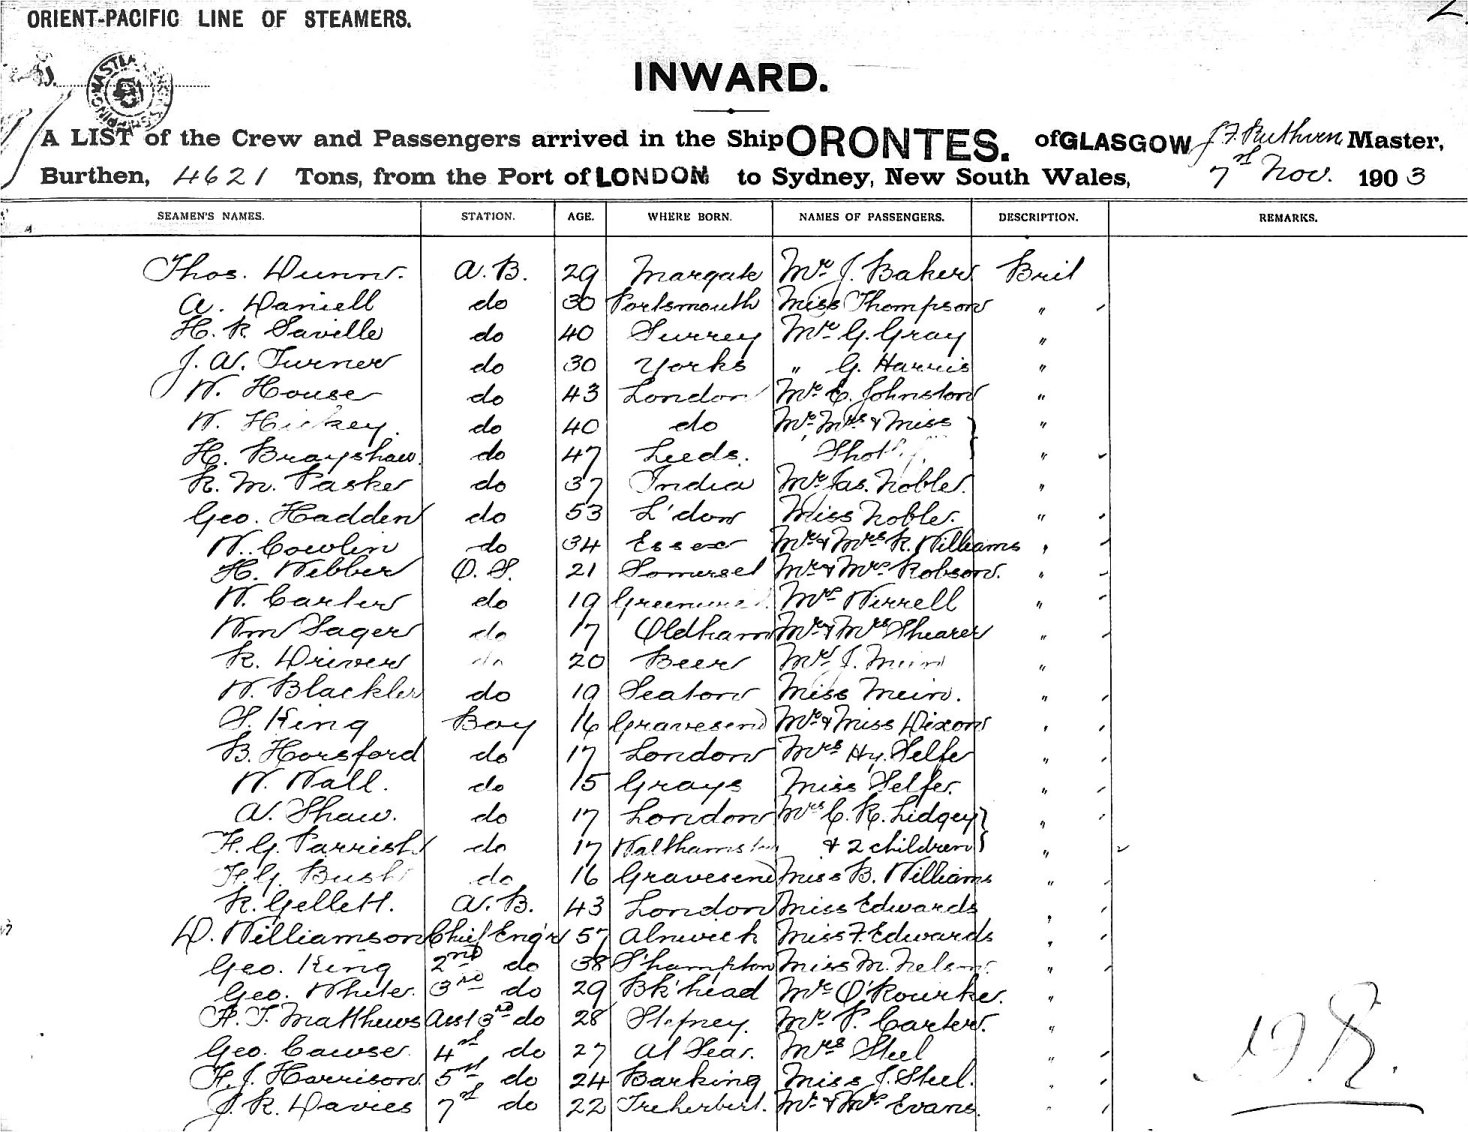 ORIENT-PACIFIC LINE OF STEAMERS.
INWARD.
A LIST of the Crew and Passengers arrived in the Ship ORONTES. of GLASGOW J F Ruthven Master,
Burthen, 4621 Tons, from the Port of LONDON to Sydney, New South Wales, 7th Nov. 1903
SEAMEN'S NAMES. STATION. AGE. WHERE BORN. NAMES OF PASSENGERS. DESCRIPTION. REMARKS.
Thos. Dunn. A.B. 29 Margate Mr J. Baker Brit
A. Daniell do 30 Portsmouth Miss Thompson "
H. R Saville do 40 Surrey Mr G. Gray "
J. W. Turner do 30 Yorks " G. Harris "
W. House do 43 London Mr C. Johnston "
W. Hickey. do 40 do Mr Mrs & Miss "
H. Brayshaw. do 47 Leeds. "
R. M. Pasker do 37 India Mr Jas. Nobler. "
Geo. Hadden do 53 L'don Miss Nobler. "
W. Cowlin do 34 Essex Mr & Mrs R. Williams "
H. Webber O.S. 21 Somerset Mr & Mrs Robson. "
W. Carter do 19 Mr Wirrell "
Wm Sager do 17 Oldham Mr & Mrs Shearer "
R. Driver do 20 Beer Mr J. Mein "
W. Blackler do 19 Seaton Miss Mein. "
S. King Boy 16 Gravesend Mr & Miss Dixon "
B. Horsford do 17 London Mrs Hy. Selfe "
W. Wall. do 15 Grays Miss Selfe. "
A. Shaw. do 17 London Mrs C. R. Lidgey "
F. G. Parrish do 17 Walthamstow & 2 children "
F. G. Bush do 16 Gravesend Miss B. Williams "
R. Gellett. A.B. 43 London Miss Edwards "
D. Williamson Chief Eng'r 57 Alnwick Miss F. Edwards "
Geo. King 2nd do 38 S'hampton Miss M. Nelson "
Geo. White. 3rd do 29 Bk'head Mr O'Rourke. "
F. T. Matthews Asst 3rd do 28 Stepney. Mr P. Carter. "
Geo. Cawser. 4th do 27 At Sea. Mrs Steel "
F. J. Harrison. 5th do 24 Barking Miss J. Steel. "
J. R. Davies 7th do 22 Treherbert. Mr & Mrs Evans. "